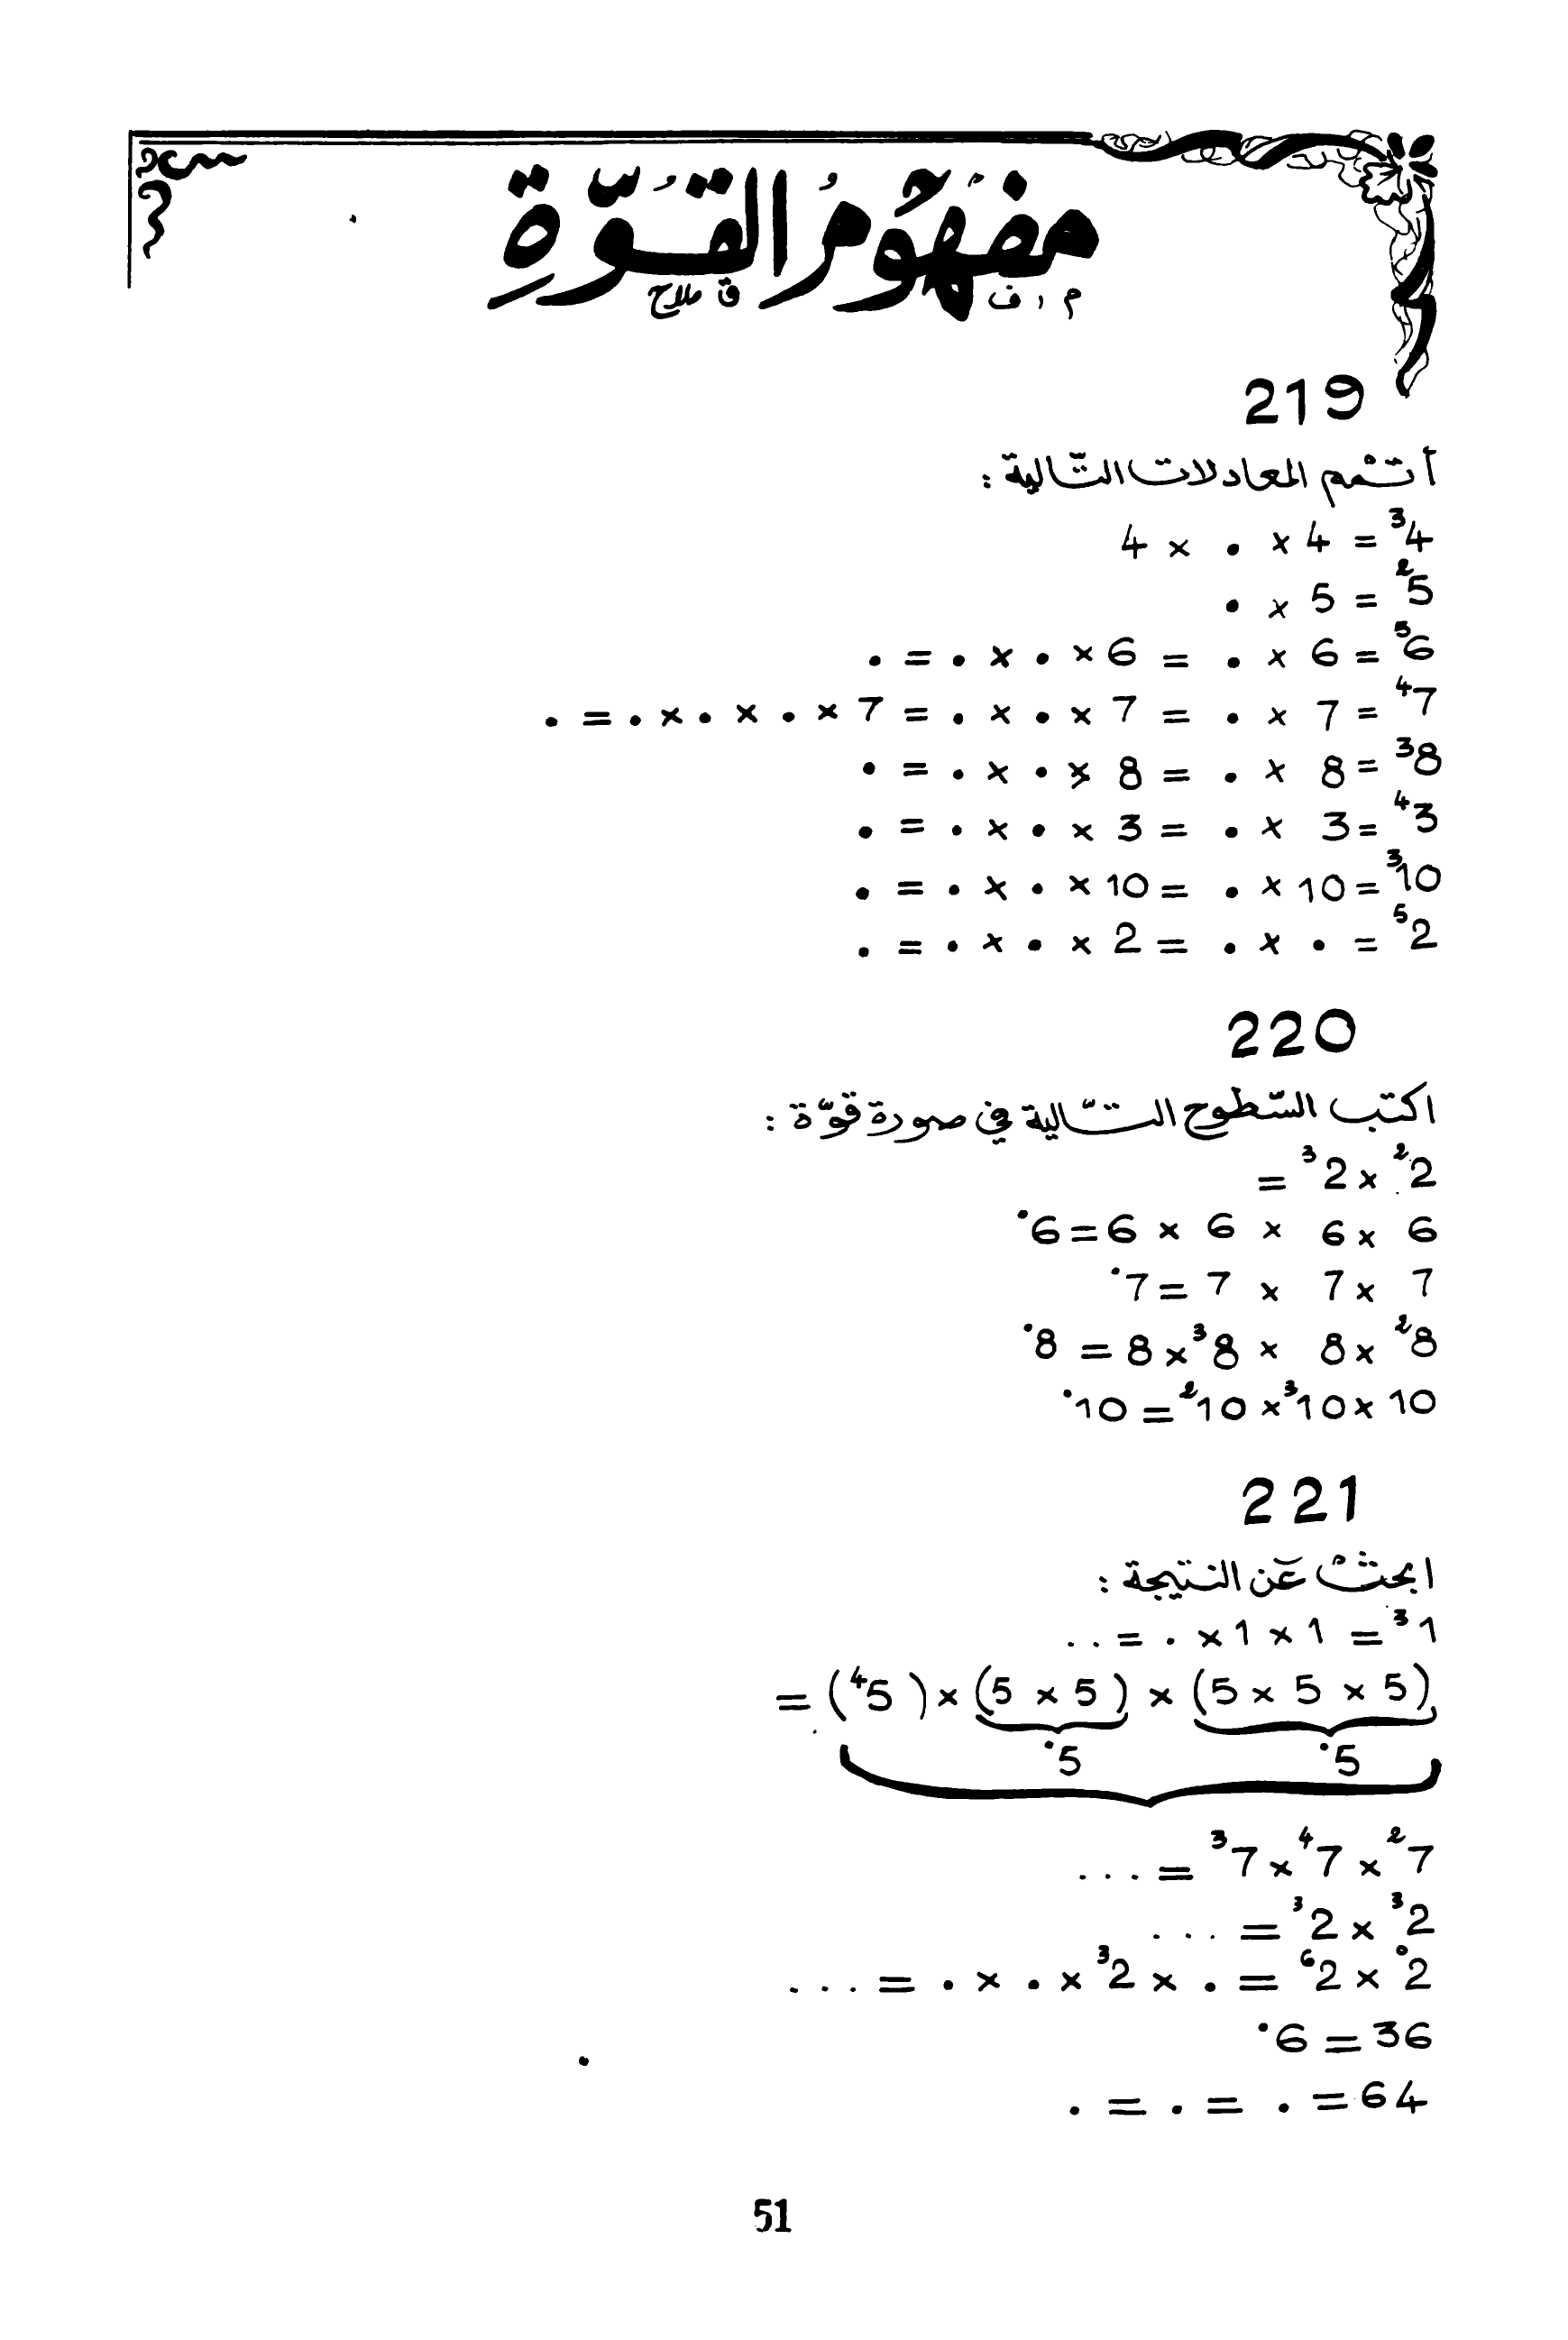 مفهُومُ القُوّةِ
م ، ف ق ملاح
219
أتمم المعادلات التّالية :
³4 = 4 × . × 4
²5 = 5 × .
³6 = 6 × . = 6 × . × . = .
⁴7 = 7 × . = 7 × . × . = 7 × . × . × . = .
³8 = 8 × . = 8 × . × . = .
⁴3 = 3 × . = 3 × . × . = .
³10 = 10 × . = 10 × . × . = .
⁵2 = . × . = 2 × . × . = .
220
اكتب السّطوح التّالية في صورة قوّة :
²2 × ³2 =
6 × 6 × 6 × 6 = ˙6
7 × 7 × 7 = ˙7
²8 × 8 × ³8 × 8 = ˙8
10 × ³10 × ²10 = ˙10
221
ابحثْ عَن النتيجة :
³1 = 1 × 1 × . = . .
(5 × 5 × 5) × (5 × 5) × (⁴5) =
˙5 ˙5
²7 × ⁴7 × ³7 = . . .
³2 × ³2 = . . .
⁰2 × ⁶2 = . × ³2 × . × . = . . .
36 = ˙6
64 = . = . = .
51